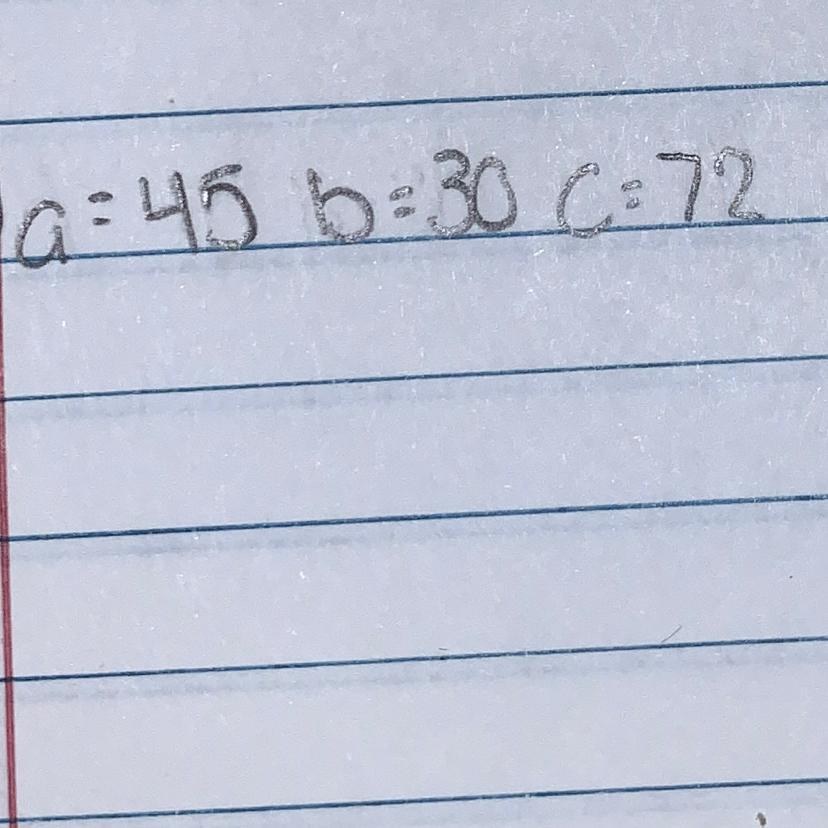 a=45 b=30 c=72